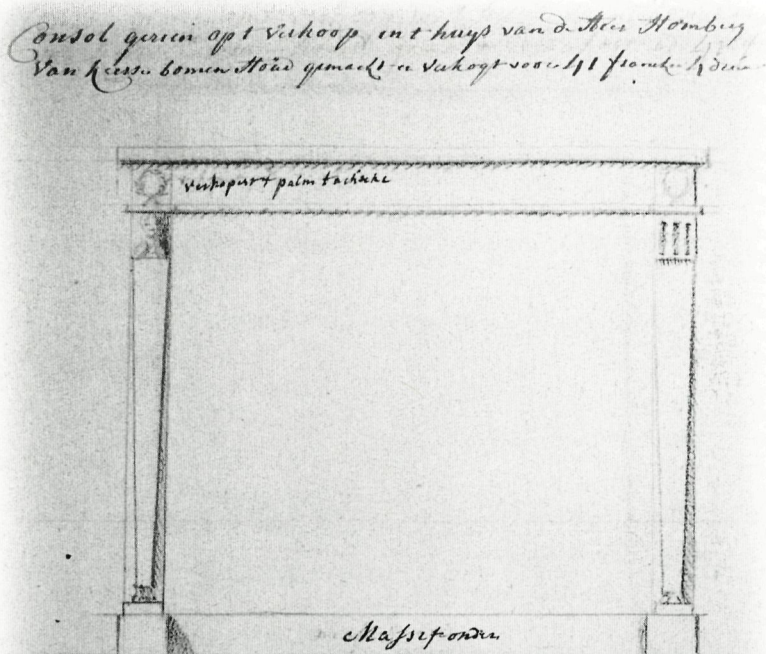 Consol gesien opt verkoop int huys van de Heer Homberg
Van Kersse bomen Houd gemackt verkogt voor 41 francken 4
verkopert palm tackeke
Massef onder